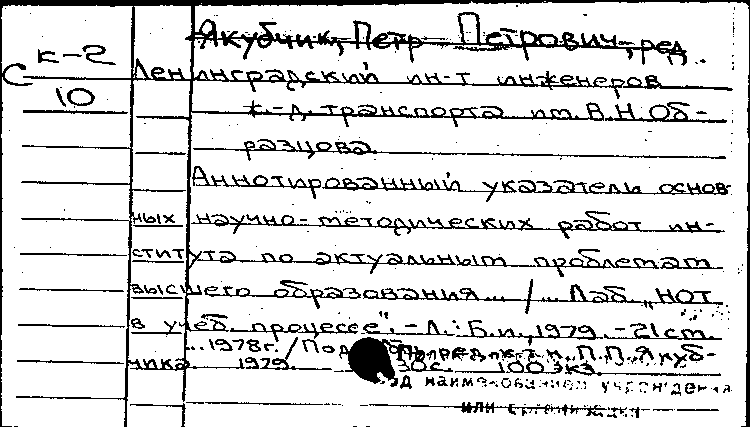 Якубчик, Петр Петрович, ред.
К-2
С
10
Ленинградский ин-т инженеров
ж.-д. транспорта им. В.Н. Об-
разцова.
Аннотированный указатель основ-
ных научно-методических работ ин-
ститута по актуальным проблемам
высшего образования... /... Лаб. „НОТ
в учеб. процессе". - Л.: Б.и., 1979. - 21 см.
...1978г. / Под ред. к.т.н. П.П. Якуб-
чика. 1979. 30 с. 100 экз.
под наименованием учреждения
или организации